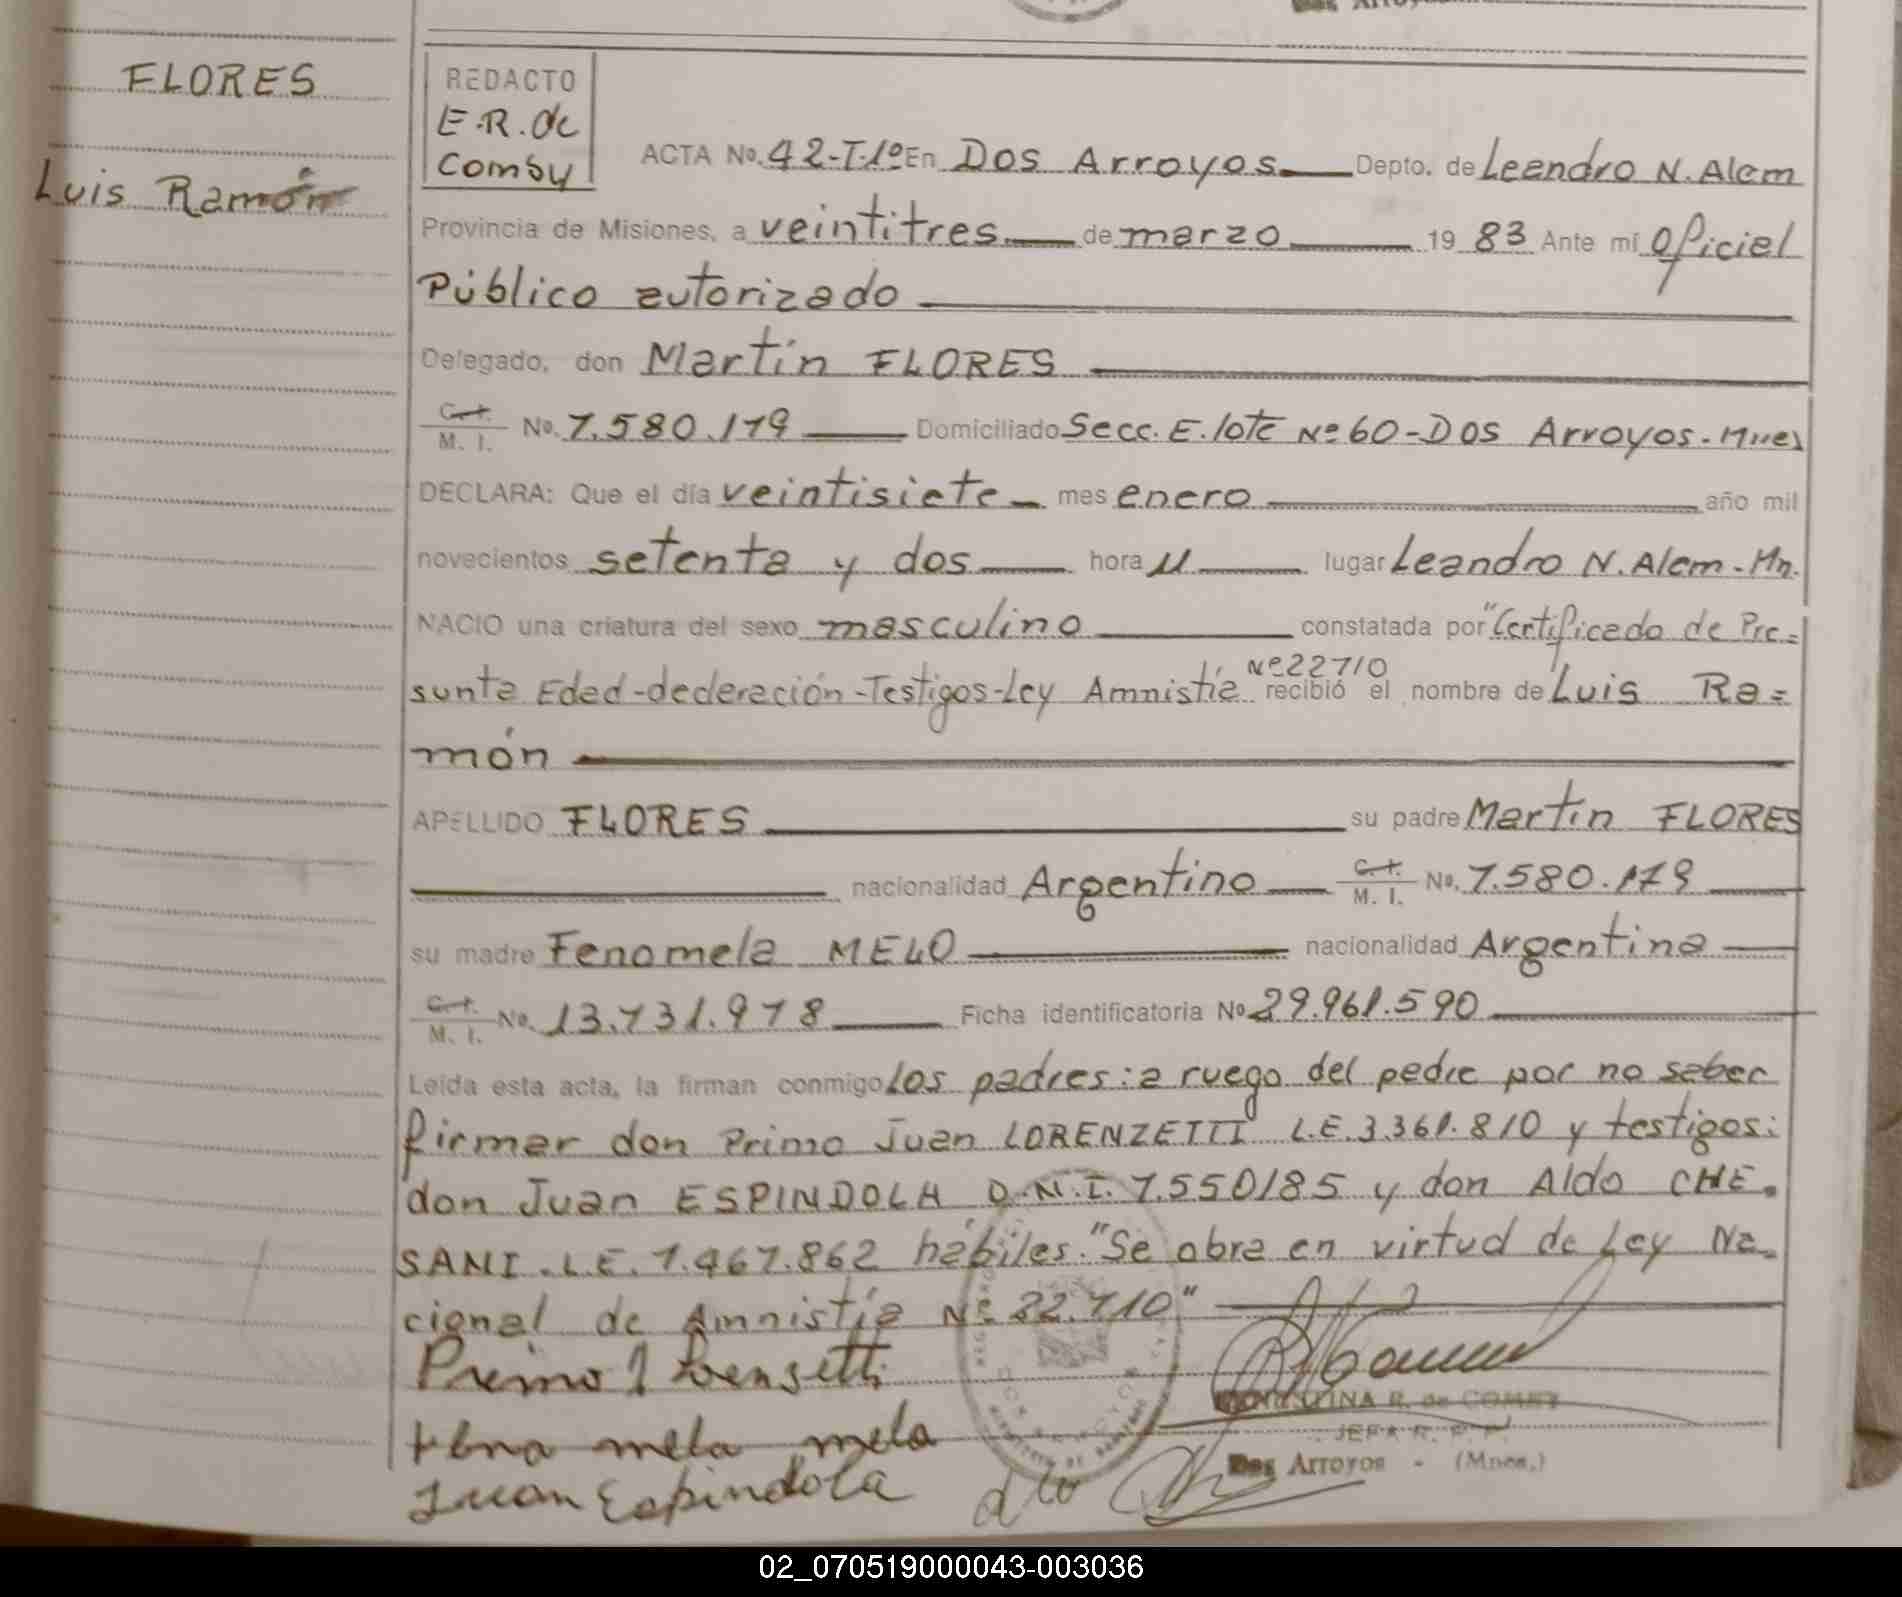 FLORES
Luis Ramón
REDACTO
E.R. de
Comby
ACTA No. 42-T-1º En Dos Arroyos Depto. de Leandro N. Alem
Provincia de Misiones, a veintitres de marzo 19 83 Ante mí oficial
Público autorizado
Delegado, don Martín FLORES
C.I. M. I. No. 7.580.179 Domiciliado Secc. E. lote Nº 60-Dos Arroyos-Mnes
DECLARA: Que el día veintisiete mes enero año mil
novecientos setenta y dos hora 11 lugar Leandro N. Alem-Mn.
NACIO una criatura del sexo masculino constatada por "Certificado de Pre=
sunta Edad-declaración-Testigos-Ley Amnistía Nº 22710 recibió el nombre de Luis Ra=
món
APELLIDO FLORES su padre Martín FLORES
nacionalidad Argentino C.I. M. I. No. 7.580.179
su madre Fenomela MELO nacionalidad Argentina
C.I. M. I. No. 13.731.978 Ficha identificatoria No 29.961.590
Leída esta acta, la firman conmigo los padres: a ruego del padre por no saber
firmar don Primo Juan LORENZETTI L.E. 3.361.810 y testigos:
don Juan ESPINDOLA D.N.I. 7.550185 y don Aldo CHE-
SANI. L.E. 7.467.862 hábiles. "Se obra en virtud de Ley Na-
cional de Amnistía Nº 22.710"
Primo J Lorensetti
mela melo
Juan Espindola
R. de COMBY
JEFA R. P. P.
Dos Arroyos - (Mnes.)
02_070519000043-003036